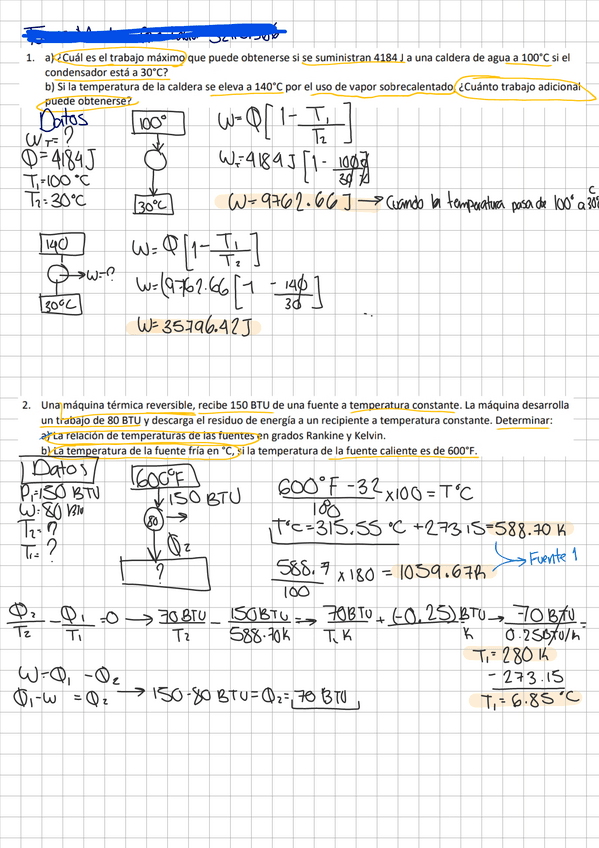 1. a) ¿Cuál es el trabajo máximo que puede obtenerse si se suministran 4184 J a una caldera de agua a 100°C si el
condensador está a 30°C?
b) Si la temperatura de la caldera se eleva a 140°C por el uso de vapor sobrecalentado, ¿Cuánto trabajo adicional
puede obtenerse?
Datos
W_T = ?
Φ = 4184 J
T₁ = 100 °C
T₂ = 30°C
100°
30°C
W = Φ [1 - T₁/T₂]
W = 4184 J [1 - 100/30]
W = 9762.66 J → Cuando la temperatura pasa de 100° a 30° C
140
→ W = ?
30°C
W = Φ [1 - T₁/T₂]
W = (9762.66 [-1 - 140/30]
W = 35796.42 J
2. Una máquina térmica reversible, recibe 150 BTU de una fuente a temperatura constante. La máquina desarrolla
un trabajo de 80 BTU y descarga el residuo de energía a un recipiente a temperatura constante. Determinar:
a) La relación de temperaturas de las fuentes en grados Rankine y Kelvin.
b) La temperatura de la fuente fría en °C, si la temperatura de la fuente caliente es de 600°F.
Datos
P₁ = 150 BTU
W = 80 BTU
T₂ = ?
T₁ = ?
600°F
150 BTU
80
Φ₂
?
600°F - 32/180 x100 = T°C
T°C = 315.55 °C + 273.15 = 588.70 K
→ Fuente 1
588.7/100 x 180 = 1059.67R
Φ₂/T₂ - Φ₁/T₁ = 0 → 70 BTU/T₂ - 150 BTU/588.70K => 70 BTU/T₁ K + (-0.25) BTU/K → -70 BTU/0.25BTU/K =
T₁ = 280 K
- 273.15
T₁ = 6.85 °C
W = Φ₁ - Φ₂
Φ₁ - W = Φ₂ → 150 - 80 BTU = Φ₂ = 70 BTU